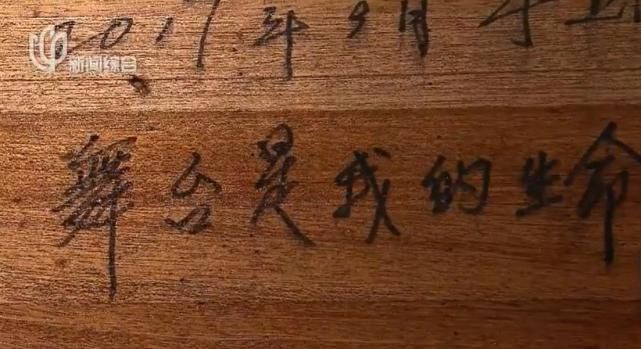 新闻综合
2017年9月于上
舞台是我的生命